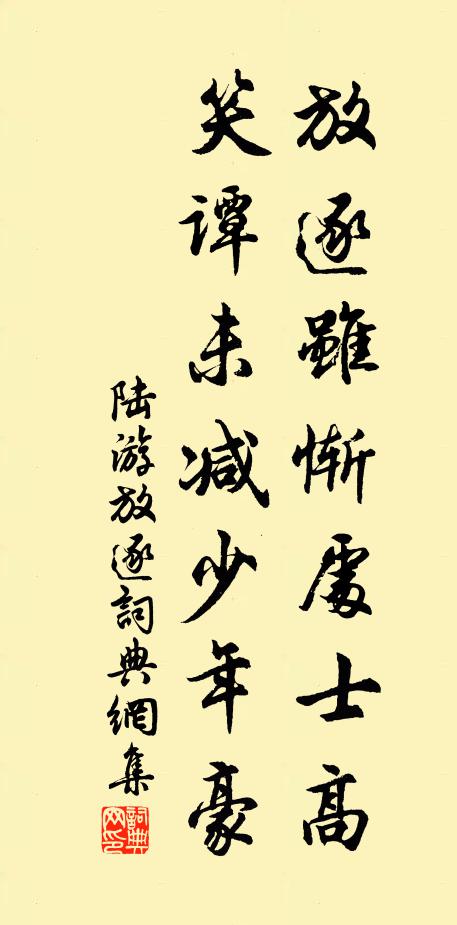 放逐雖慚處士高
笑譚未減少年豪
陆游放逐詞典網集
詞典網印